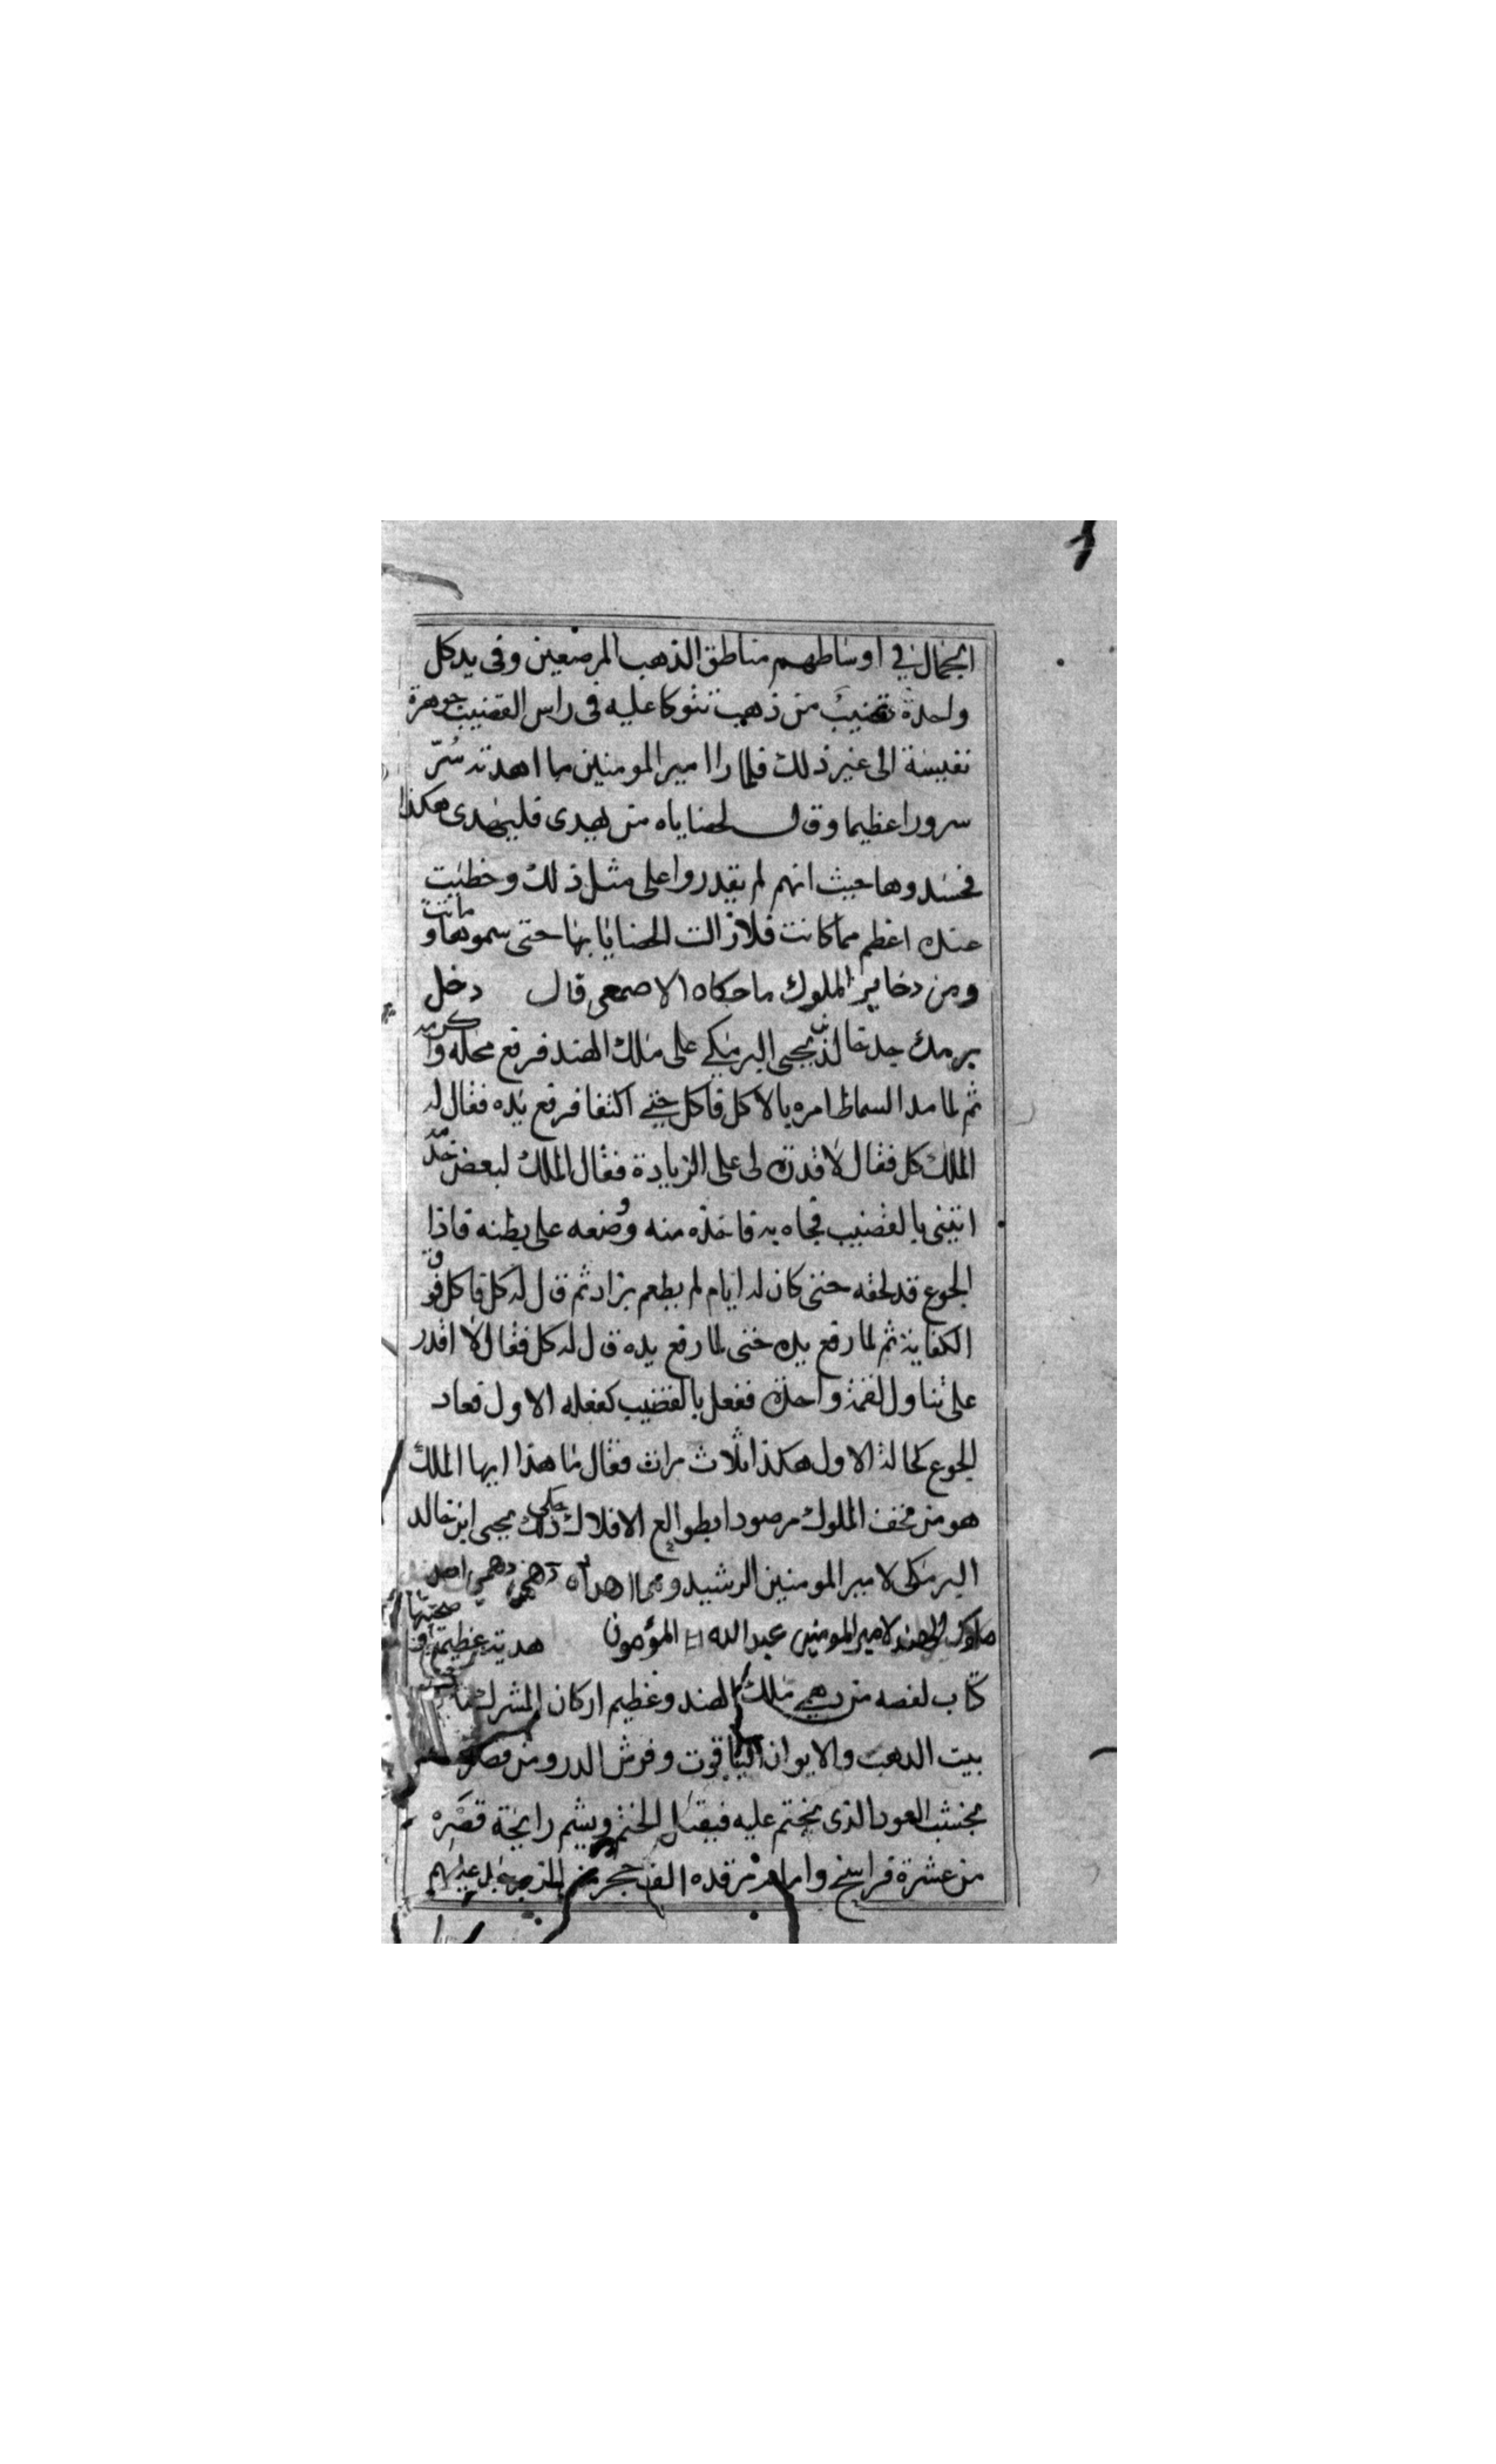 الجمال في اوساطهم مناطق الذهب المرصعين وفي يد كل
واحدة قضيب من ذهب تتوكا عليه في راس القضيب جوهرة
نفيسة الى غير ذلك فلما راا امير المومنين ما اهدته سُرّ
سرورا عظيما وقال لحضاياه من يهدى فليهدى هكذا
فحسدوها حيث انهم لم يقدروا على مثل ذلك وحظيت
عنده اعظم مما كانت فلازالت الحضايا بها حتى سموها وماتت
ومن دخاير الملوك ما حكاه الاصمعى قال دخل
برمك جد خالد بن يحيى البرمكي على ملك الهند فرفع محله واكرمه
ثم لما مد السماط امره بالاكل فاكل حتى اكتفا فرفع يده فقال له
الملك كل فقال لا قدرة لى على الزيادة فقال الملك لبعض خدمه
اتيني بالقضيب فجاه به فاخذه منه ووضعه على بطنه فاذا
الجوع قد لحقه حتى كان له ايام لم يطعم بزاد ثم قال له كل فاكل فوق
الكفاية ثم لما رفع يده حتى لما رفع يده قال له كل فقال لا اقدر
على تناول لقمة واحدة ففعل بالقضيب كفعله الاول فعاد
الجوع كحالة الاول هكذا ثلاث مرات فقال ما هذا ايها الملك
هو من تحف الملوك مرصودا بطوالع الافلاك حكى ذلك يحيى ابن خالد
البرمكى لامير المومنين الرشيد ومما اهداه دهمى
ملوك الهند لامير المومنين عبد الله المؤمون هدية عظيمة صحبتها
كتاب لفصه من دهمي ملك الهند وعظيم اركان المشرك
بيت الذهب والايوان الياقوت وفرش الدر ومن قصره
بخشب العود الذى يختم عليه فيقبل الختم ويشم رايحة قصره
من عشرة فراسخ وامام مرقده الف حجر من